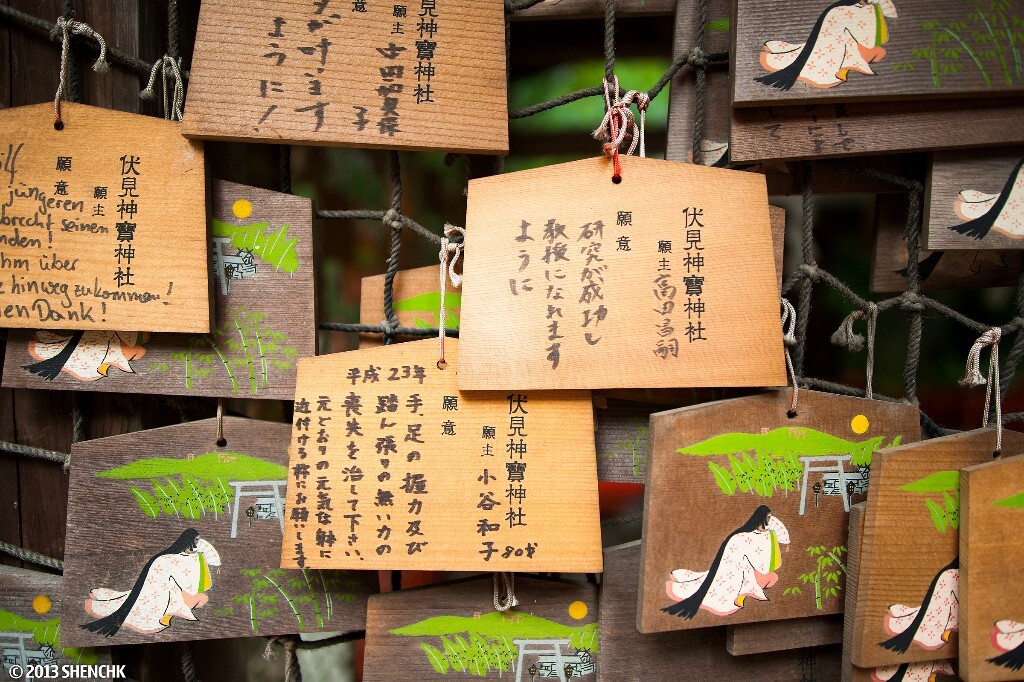 伏見神寶神社
願主
すが
けます
ように!
伏見神寶神社
願主
願意
jüngeren
brecht seinen
nden!
hm über
hinweg zukommen!
en Dank!
伏見神寶神社
願主 高田昌嗣
願意
研究が成功し
教授になれます
ように
伏見神寶神社
願主 小谷和子 80才
願意
平成23年 手、足の握力及び
踏ん張りの無い力の
喪失を治して下さい。
元どおりの元気な躰に
近付ける様にお願いします。
© 2013 SHENCHK